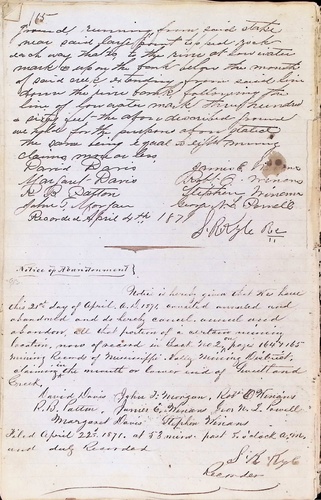 165
ground running from said stake
near said large
each way that is to the river at low water
mark & upon the bank below the mouth
of said creek extending from said line
down the river bank following the
line of low water mark three hundred
feet the above described ground
we for the purposes above stated
the same being equal to eight mining
claims more or less
David Davis James E Winans
Margaret Davis Winans
R. B. Patton Stephen Winans
John T. Morgan George W. L. Powell
Recorded April 4th 187
S. R. Kyle Re
Notice of Abandonment
Notice is hereby given that we have
this 21st day of April A.D. 1871, canceled annulled and
abandoned and do hereby cancel, annul and
abandon, all that portion of a certain mining
location, now of record in Book No 2 on page 164 & 165
Mining Records of Mississippi Valley Mining District,
claiming the mouth or lower end of
Creek,
David Davis John T. Morgan, Robt O. Winans
R. B. Patton, James E. Winans Geo. W. L. Powell
Margaret Davis Stephen Winans
Filed April 22d 1871. at 53 min. past 7 o'clock a.m.
and duly Recorded
S. R. Kyle
Recorder